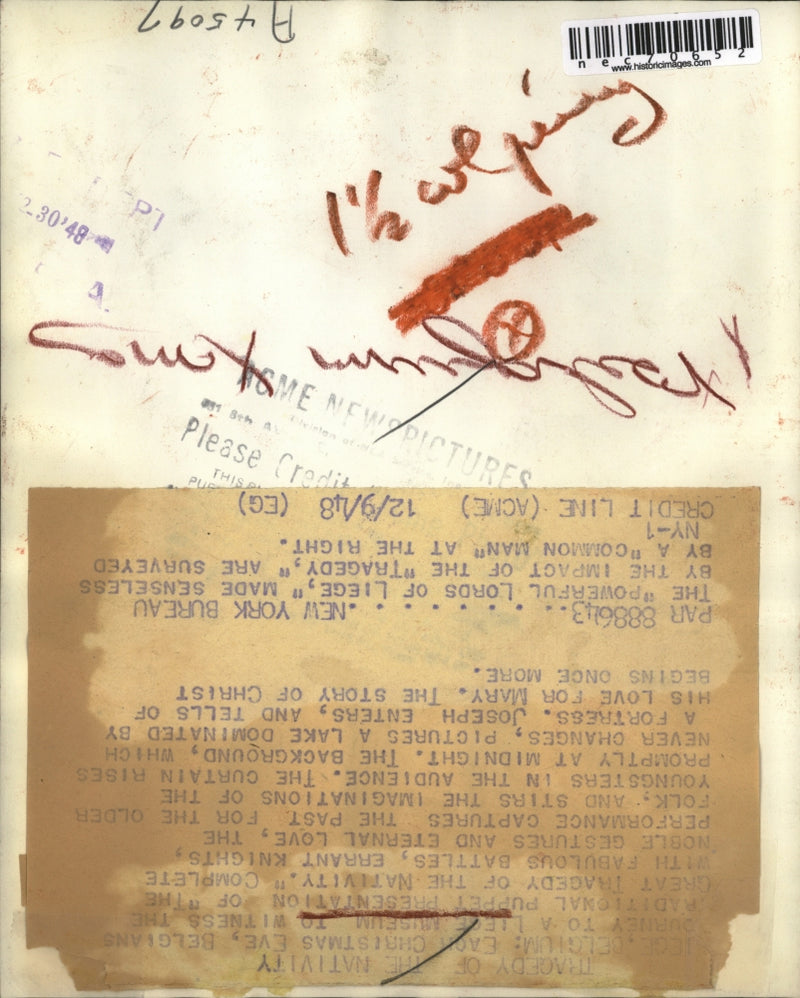 A 45097
nec70652
www.historicimages.com
1 1/2 col
30'48
X Belgium Xmas
X
ACME NEWSPICTURES
Please Credit
TRAGEDY OF THE NATIVITY
LIEGE, BELGIUM: EACH CHRISTMAS EVE, BELGIANS
JOURNEY TO A LIEGE MUSEUM TO WITNESS THE
TRADITIONAL PUPPET PRESENTATION OF "THE
GREAT TRAGEDY OF THE NATIVITY." COMPLETE
WITH FABULOUS BATTLES, ERRANT KNIGHTS,
NOBLE GESTURES AND ETERNAL LOVE, THE
PERFORMANCE CAPTURES THE PAST FOR THE OLDER
FOLK, AND STIRS THE IMAGINATIONS OF THE
YOUNGSTERS IN THE AUDIENCE. THE CURTAIN RISES
PROMPTLY AT MIDNIGHT. THE BACKGROUND, WHICH
NEVER CHANGES, PICTURES A LAKE DOMINATED BY
A FORTRESS. JOSEPH ENTERS, AND TELLS OF
HIS LOVE FOR MARY. THE STORY OF CHRIST
BEGINS ONCE MORE.
PAR 888643. . . . . . . . .NEW YORK BUREAU
THE "POWERFUL LORDS OF LIEGE," MADE SENSELESS
BY THE IMPACT OF THE "TRAGEDY," ARE SURVEYED
BY A "COMMON MAN" AT THE RIGHT.
NY-1
CREDIT LINE (ACME) 12/9/48 (EG)